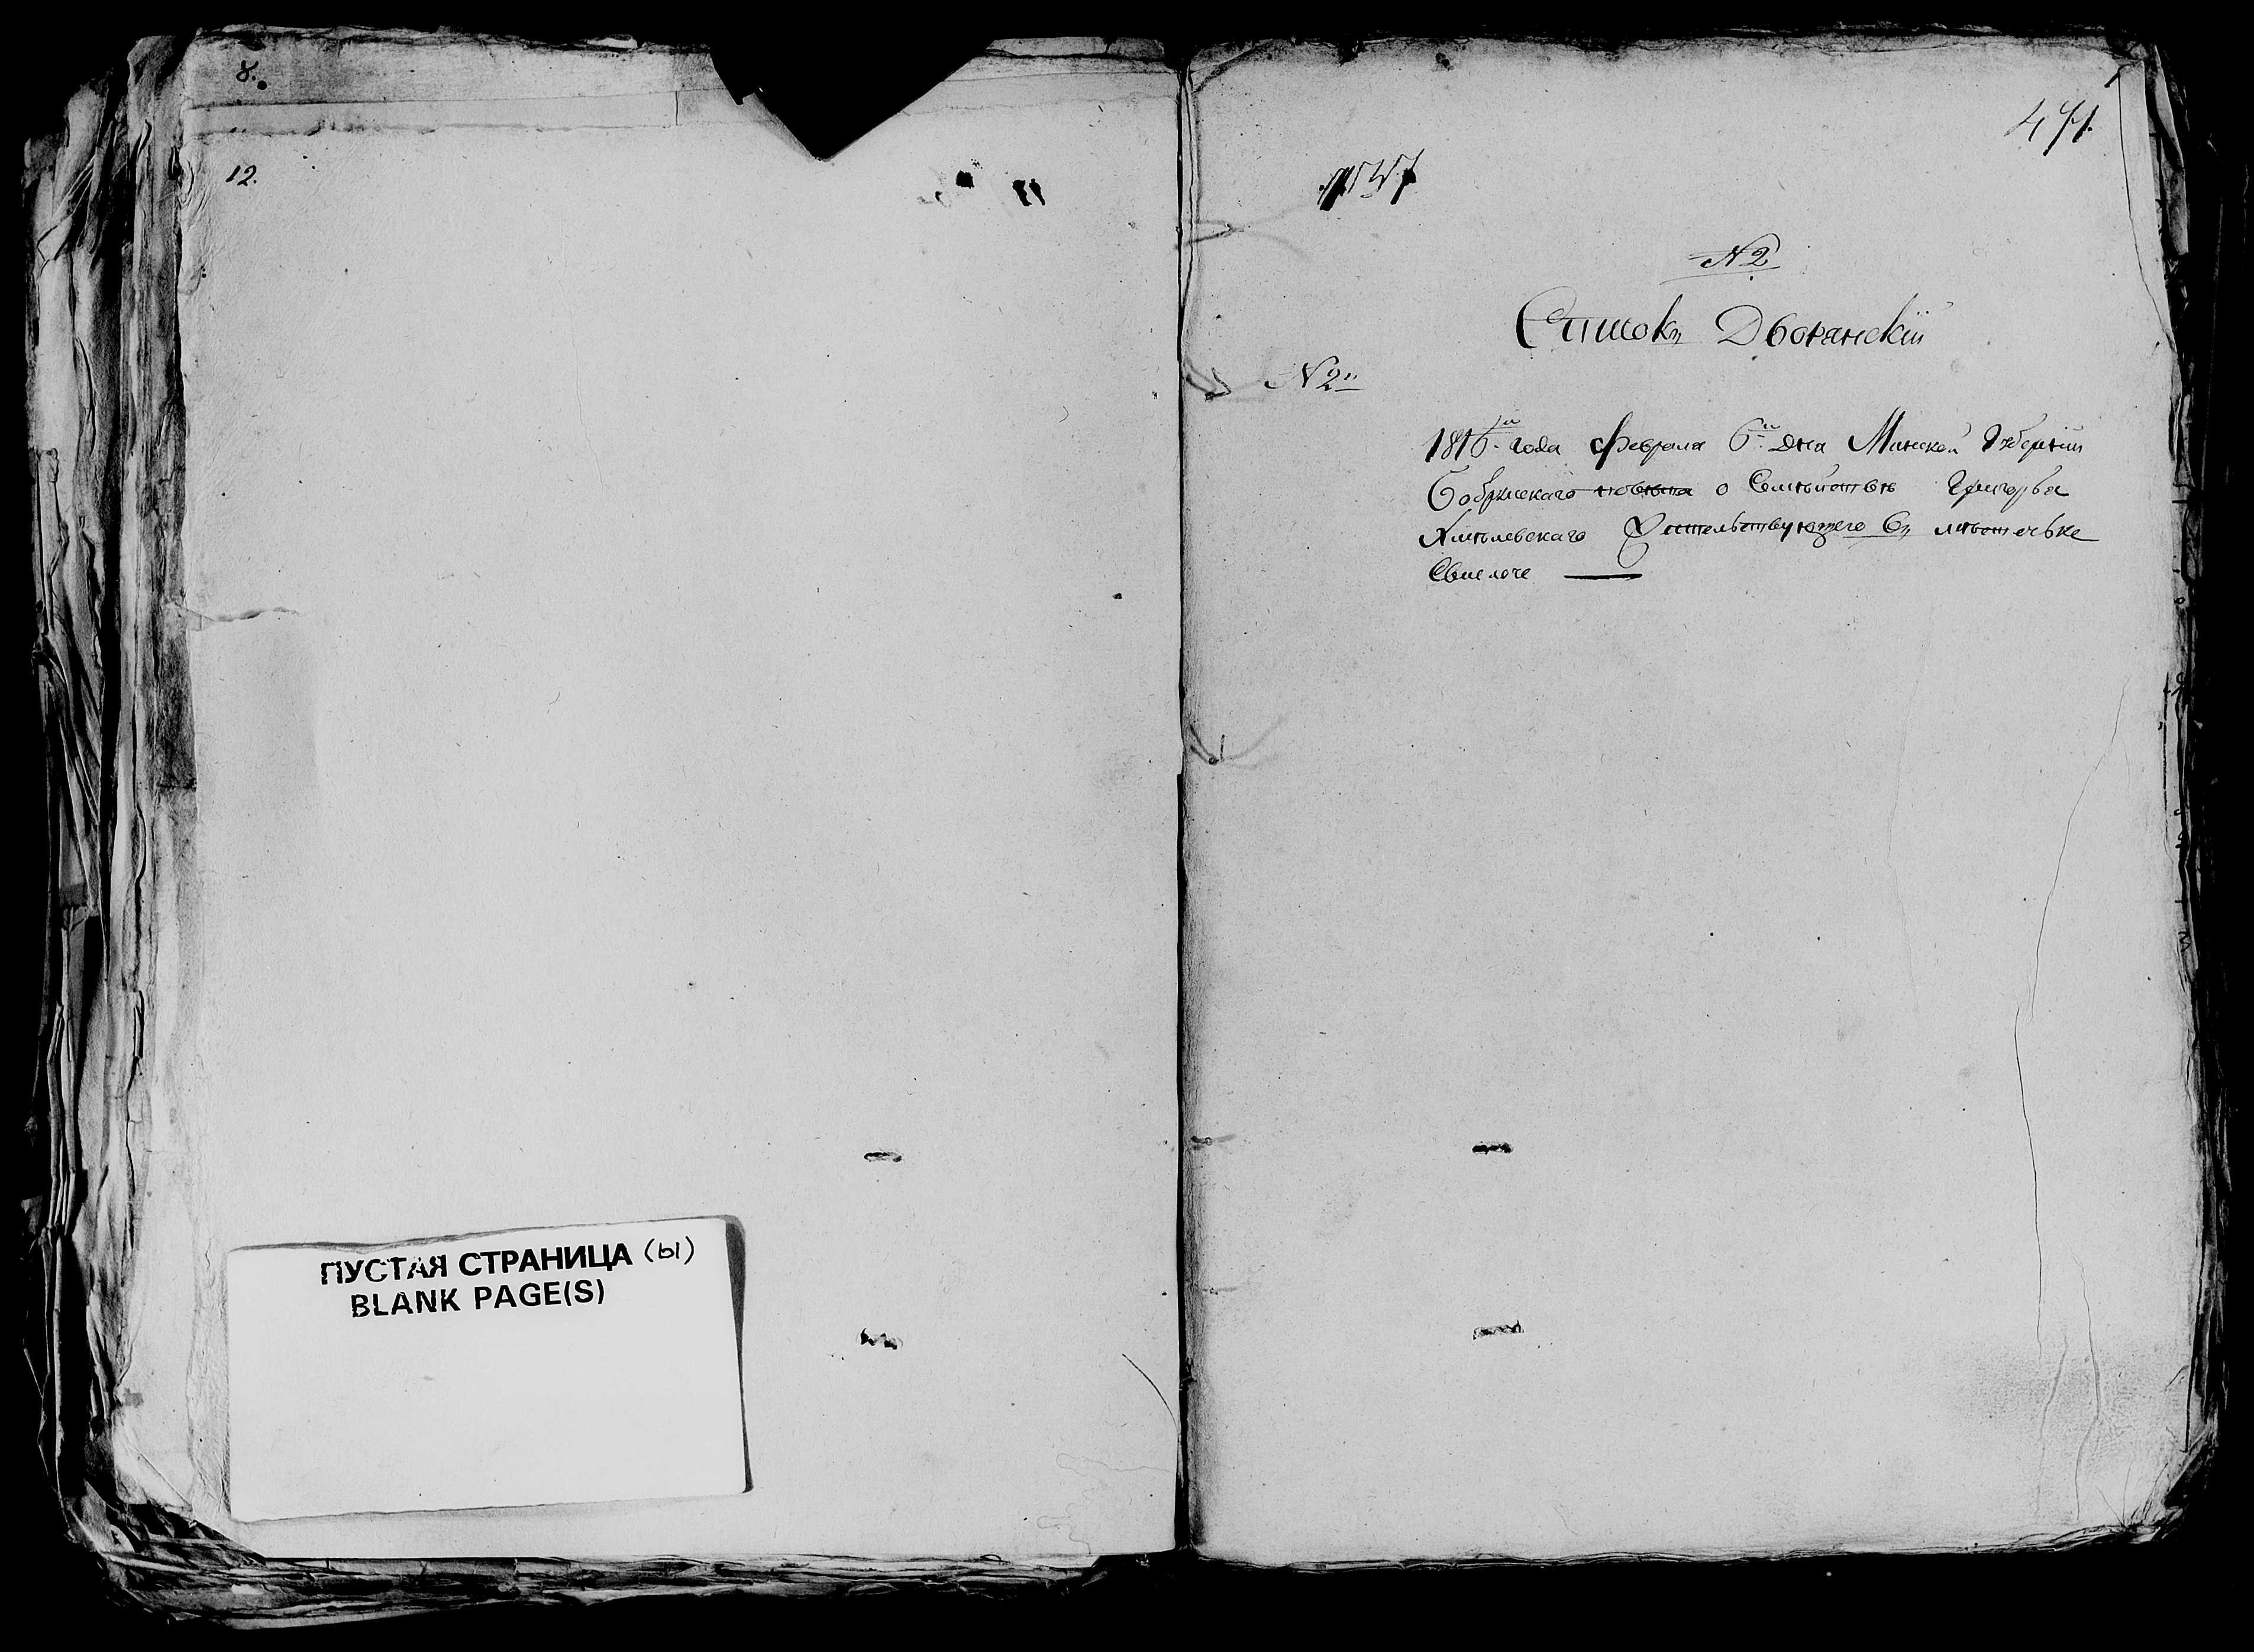 8.
12.
ПУСТАЯ СТРАНИЦА (Ы)
BLANK PAGE(S)
471.
N2
Списокъ Дворянскiй
N2й
1816го года февраля 6го дня Минской Губернiи
Бобруискаго повѣта о Семѣйствѣ Григорья
Хмѣлевскаго Жительствующего въ мѣстечьке
Свислоче